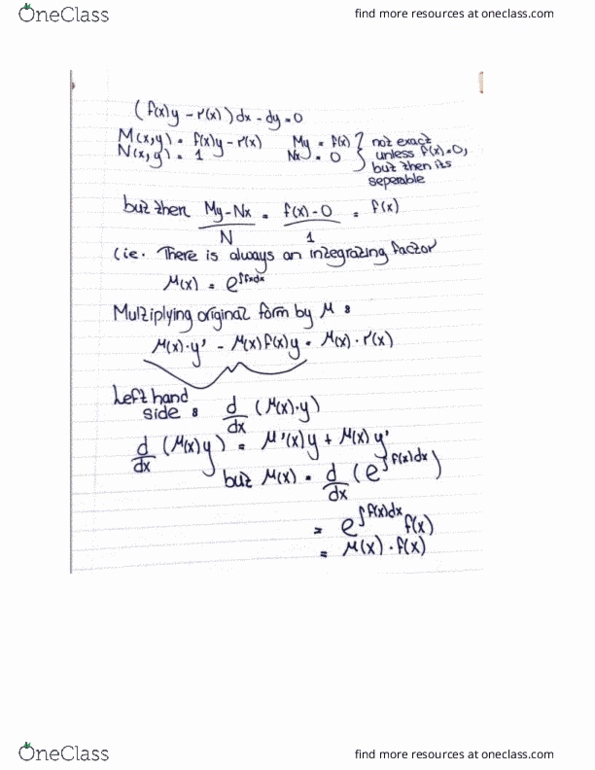 OneClass
find more resources at oneclass.com
(f(x)y - r(x)) dx - dy = 0
M(x,y) = f(x)y - r(x)   My = f(x) } not exact
N(x,y) = 1   Nx = 0 } unless f(x)=0,
but then its
seperable
but then My-Nx / N = f(x)-0 / 1 = f(x)
(ie. There is always an integrating factor
μ(x) = e^∫f(x)dx
Multiplying original form by μ :
μ(x)·y' - μ(x)f(x)y = μ(x)·r(x)
Left hand
side : d/dx (μ(x)·y)
d/dx (μ(x)y) = μ'(x)y + μ(x)y'
but μ(x) = d/dx (e^∫f(x)dx)
= e^∫f(x)dx f(x)
= μ(x)·f(x)
OneClass
find more resources at oneclass.com